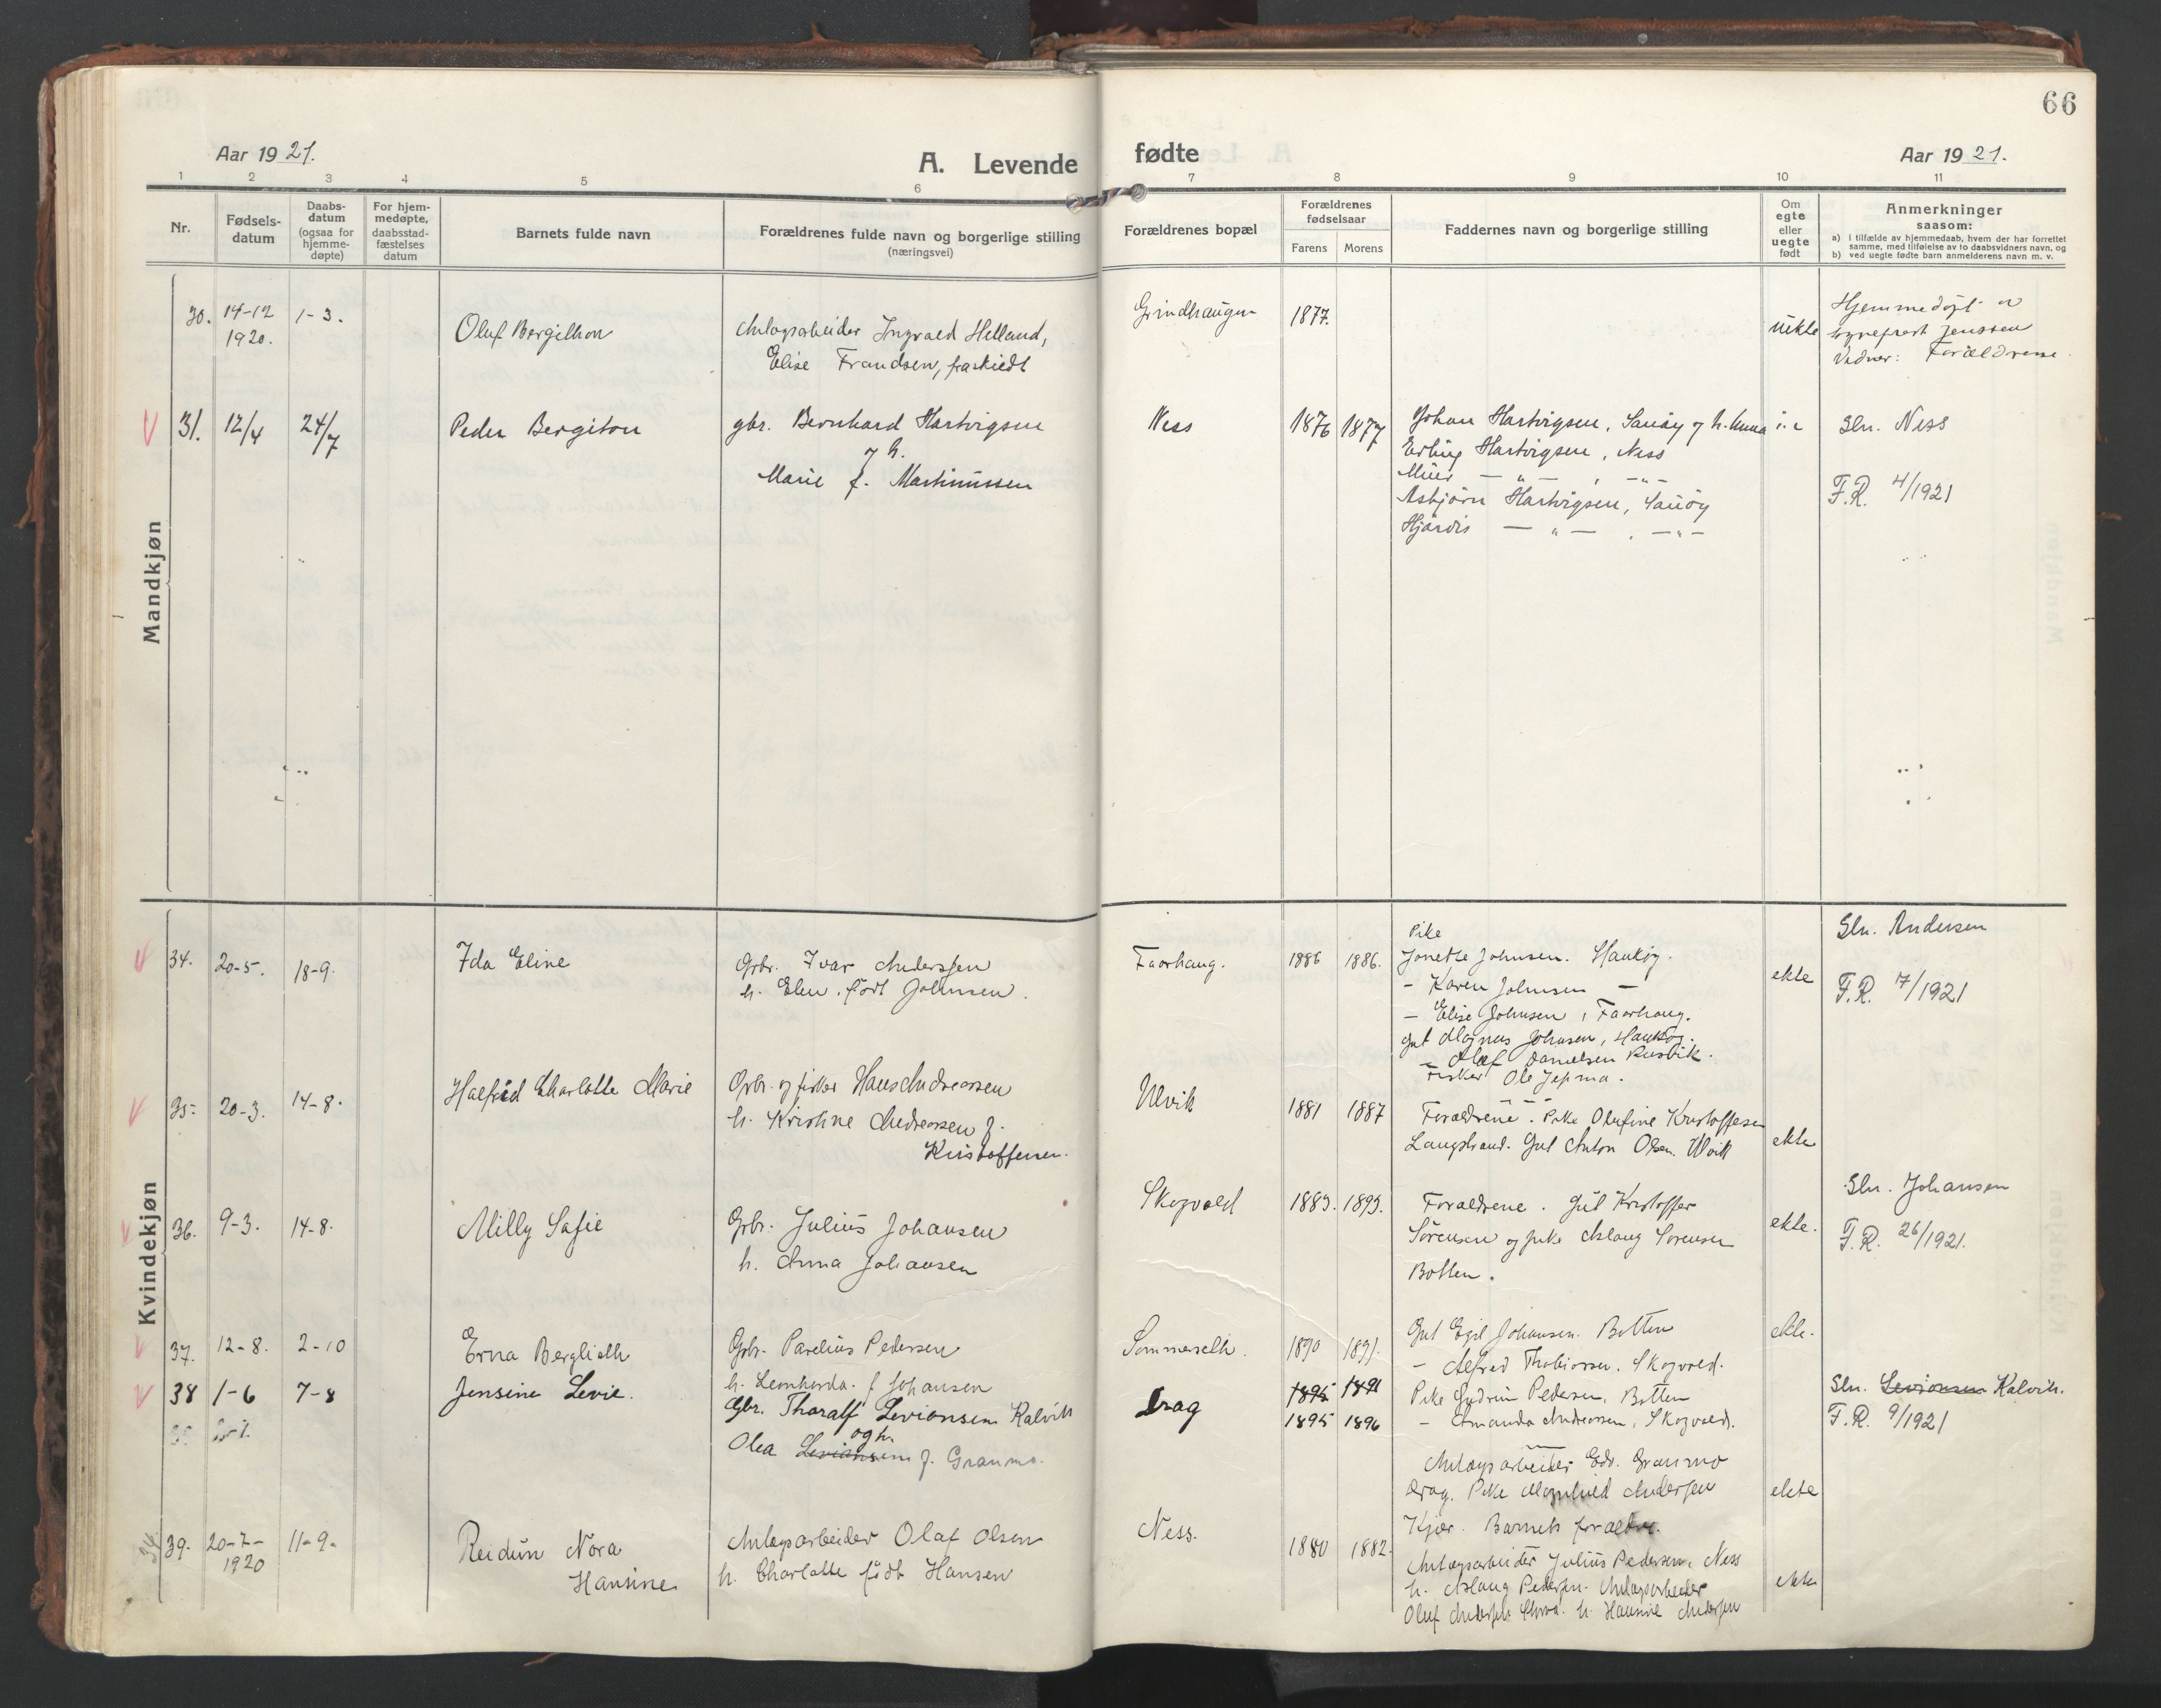 66
Aar 1921.
A. Levende fødte
Aar 1921.
1 2 3 4 5 6 7 8 9 10 11
Nr.
Fødsels-
datum
Daabs-
datum
(ogsaa for
hjemme-
døpte)
For hjem-
medøpte,
daabsstad-
fæstelses
datum
Barnets fulde navn
Forældrenes fulde navn og borgerlige stilling
(næringsvei)
Forældrenes bopæl
Forældrenes
fødselsaar
Farens Morens
Faddernes navn og borgerlige stilling
Om
egte
eller
uegte
født
Anmerkninger
saasom:
a) i tilfælde av hjemmedaab, hvem der har forrettet
samme, med tilføielse av to daabsvidners navn, og
b) ved uegte fødte barn anmelderens navn m. v.
Mandkjøn
30. 14-12
1920.
1-3.
Oluf Bergithon
Anlægsarbeider Ingvald Helland,
Elise Frandsen, fraskiedt
Grindhaugen
1877.
uekte
Hjemmedøpt av
sogneprest Jenssen
Vidner: Forældrene.
31. 12/4 24/7
Peder Bergiton
gbr. Bernhard Hartvigsen
og h.
Marie f. Martinussen
Ness
1876 1877
Johan Hartvigsen, Sandøy og h. Anna
Erling Hartvigsen, Ness
— „ — , — „ —
Asbjørn Hartvigsen, Sandøy
Hjørdis — „ — , — „ —
Sln. Ness
F.R. 4/1921
Kvindekjøn
34. 20-5. 18-9.
Ida Eline
Gbr. Ivar Anderssen
h. Elen. født Johnsen.
Faarhaug.
1886 1886.
Pike
Jonette Johnsen. Haukøy.
- Karen Johnsen —
- Elise Johnsen, Faarhaug.
gut Magnus Johnsen, Haukøy.
- Olaf Danielsen
Fisker Ole
ekte
Sln. Andersen
F.R. 7/1921
35. 20-3. 14-8.
Halfrid Charlotte Marie
Gbr. og fisker Hans Andreassen
h. Kristine Andreassen f.
Kristoffersen.
Ulvik
1881 1887
Forældrene. Pike Olufine Kristoffersen
Langstrand. Gut Anton Olsen. Ulvik
ekte
36. 9-3. 14-8.
Milly Safie
Gbr. Julius Johansen
h. Anna Johansen
Skogvold
1883. 1893.
Forældrene. Gut Kristoffer
Sørensen og pike Aslaug Sørensen
Botten.
ekte.
Sln. Johansen
F.R. 26/1921.
37. 12-8. 2-10
Erna Berglioth
Gbr. Parelius Pedersen
h. Leonharda. f Johansen
Sommerseth.
1890 1891.
Gut Egil Johansen. Botten
- Alfred Thobiassen. Skogvold.
Pike Gudrun Pedersen, Botten
- Amanda Andreassen, Skogvold.
ekte.
38 1-6 7-8
Jensine Levie.
Gbr. Tharalf Levionsen Kalvik
og h.
Olea Levionsen f. Granmo.
Drag
1895 1891
1895 1896
Anlægsarbeider Edv. Granmo
Drag. Pike Magnhild Andersen
Kjær. Barnets forældre.
ekte
Sln. Levionsen Kalvik.
F.R. 9/1921
34 39. 20-7-
1920
11-9-
Reidun Nora
Hansine
Anlægsarbeider Olaf Olsen
h. Charlotte født Hansen
Ness.
1880 1882.
Anlægsarbeider Julius Pedersen, Ness
h. Aslaug Pedersen. Anlægsarbeider
Oluf Andersen h. Hansine Andersen
ekte